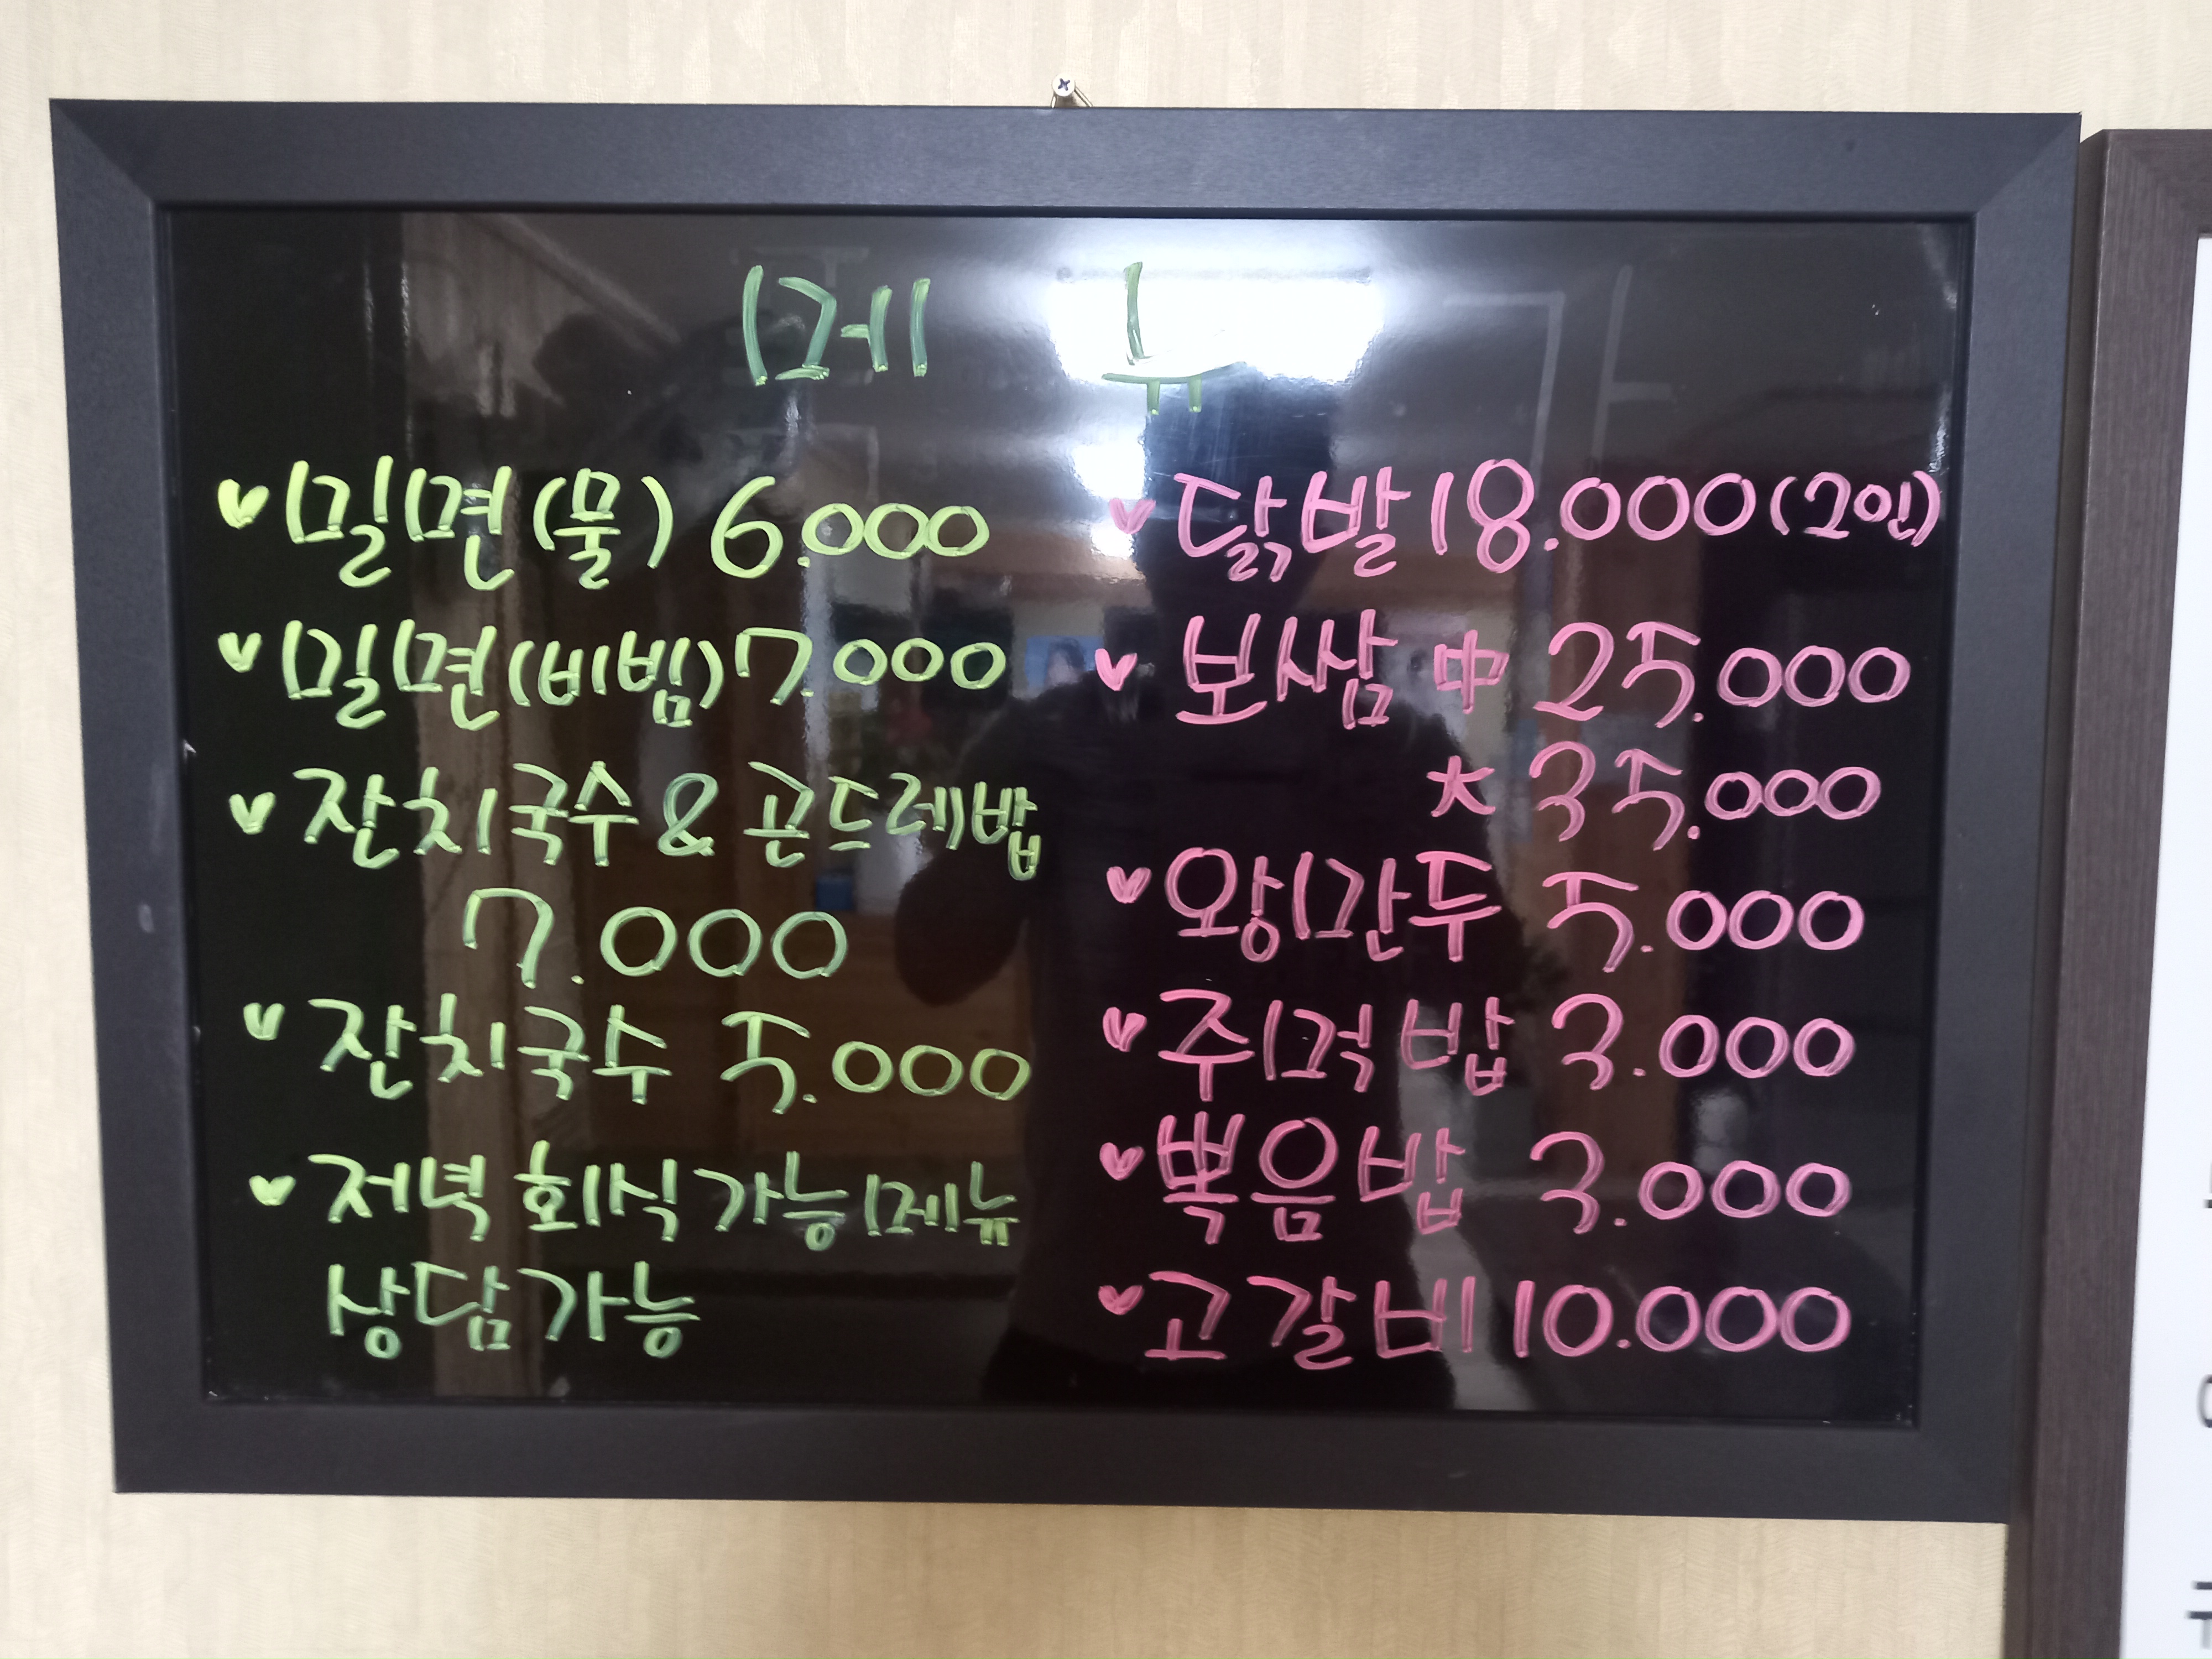 메 뉴
밀면(물) 6.000
밀면(비빔) 7.000
잔치국수 & 곤드레밥
7.000
잔치국수 5.000
저녁 회식 가능 메뉴
상담 가능
닭발 18.000 (2인)
보쌈 中 25.000
大 35.000
왕만두 5.000
주먹밥 3.000
뽂음밥 3.000
고갈비 10.000